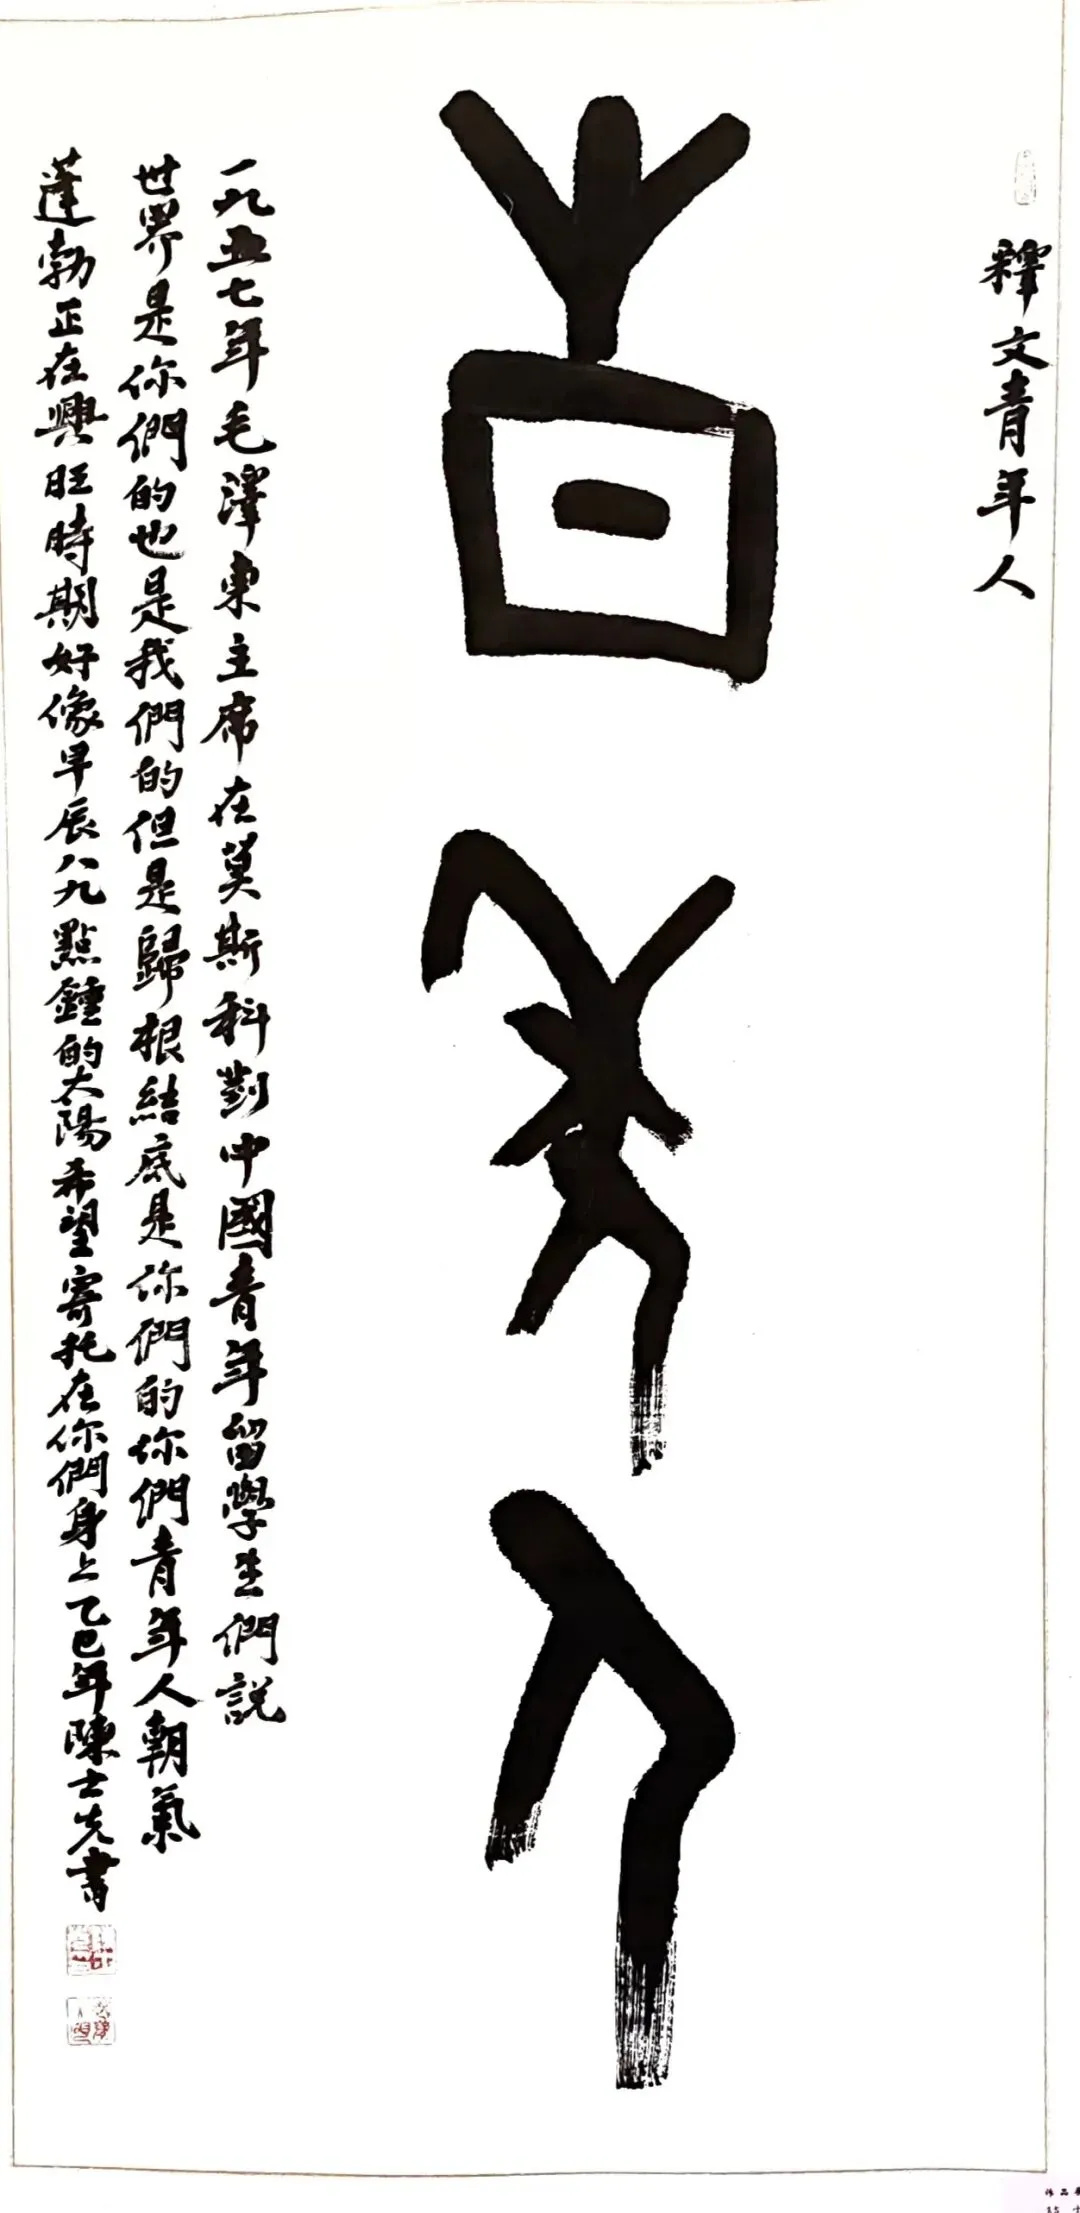 釋文青年人
青年人
一九五七年毛澤東主席在莫斯科對中國青年留學生們説
世界是你們的也是我們的但是歸根結底是你們的你們青年人朝氣
蓬勃正在興旺時期好像早辰八九點鐘的太陽希望寄托在你們身上乙巳年陳士先書
作品